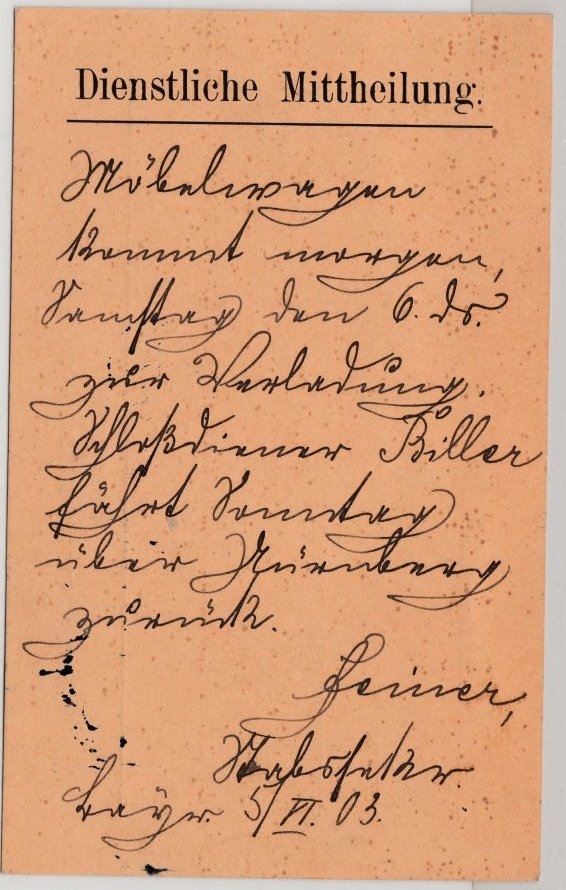 Dienstliche Mittheilung.
Möbelwagen
kommt morgen,
Samstag den 6. ds.
zur Verladung.
Schloßdiener Biller
fährt Sonntag
über Nürnberg
zurück.
Feiner,
Stabssekr.
Bayr. 5/VI. 03.